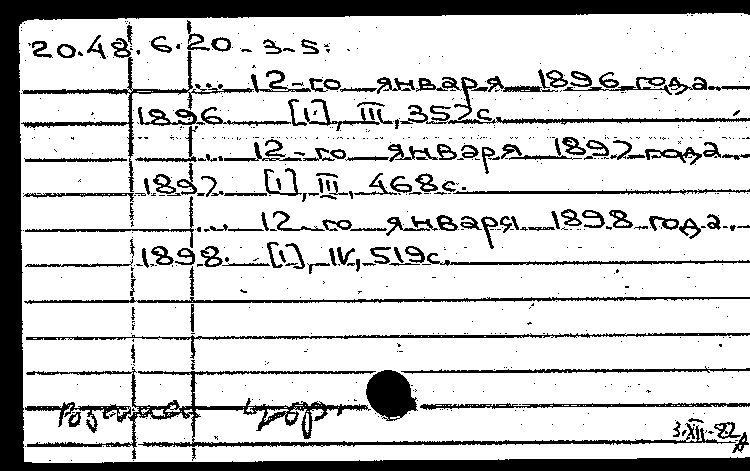 20.48.6.20-3-5:
... 12-го января 1896 года.
1896. [1], III, 357с.
... 12-го января 1897 года.
1897. [1], III, 468с.
... 12-го января 1898 года.
1898. [1], IV, 519с.
3.XII-82